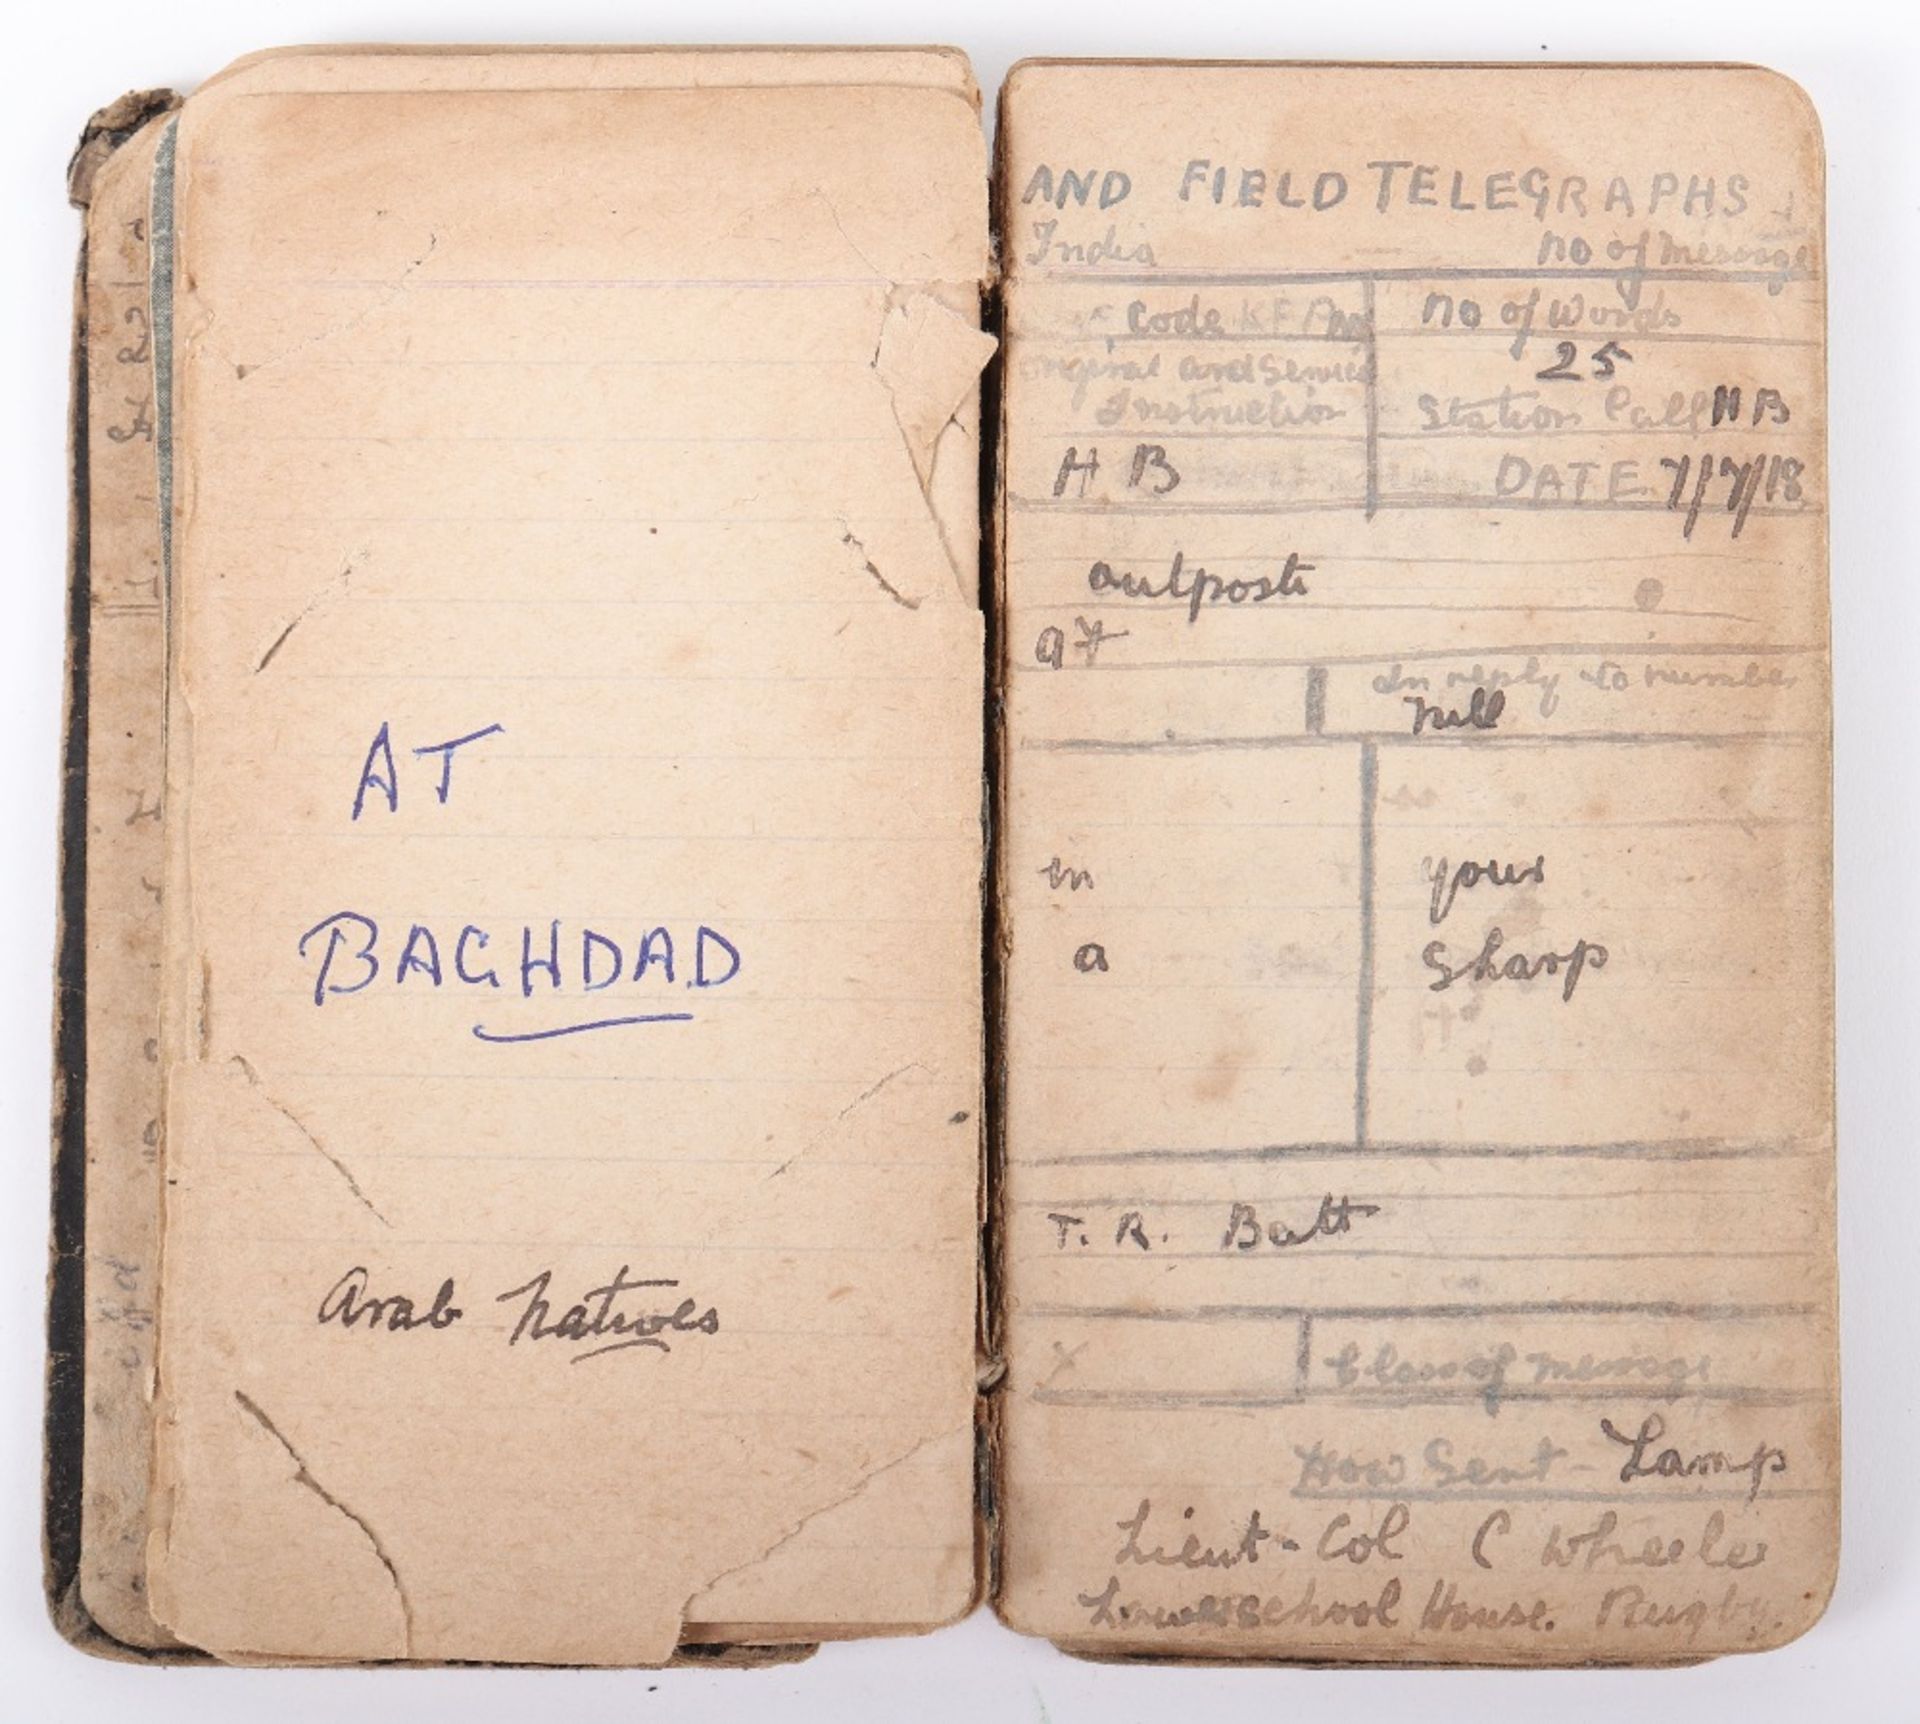 AT
BAGHDAD
Arab Natives
AND FIELD TELEGRAPHS
India No of Message
Code No of Words
Original and Service 25
Instruction Station Call HB
H B DATE 7/7/18
outposts
at
In reply to number
Nill
in your
a Sharp
T. R. Batt
X Class of Message
How Sent - Lamp
Lieut-Col C Wheeler
Lowerschool House. Rugby.